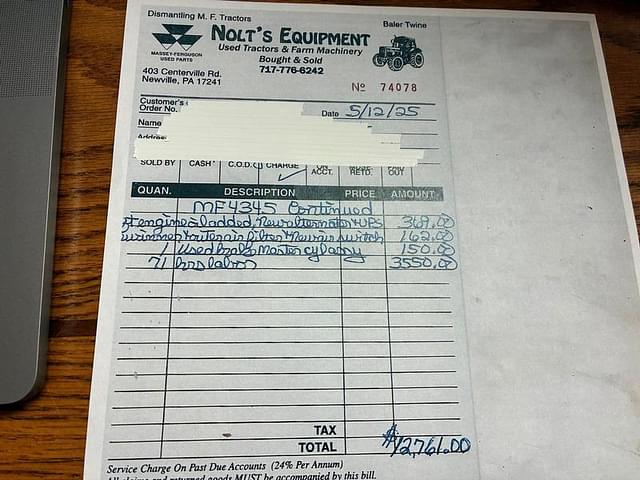 Dismantling M. F. Tractors
Baler Twine
NOLT'S EQUIPMENT
Used Tractors & Farm Machinery
Bought & Sold
717-776-6242
MASSEY-FERGUSON
USED PARTS
403 Centerville Rd.
Newville, PA 17241
No 74078
Customer's
Order No.
Date 5/12/25
Name
Address
SOLD BY CASH C.O.D. CHARGE ON ACCT. MDSE. RETD. PAID OUT
QUAN. DESCRIPTION PRICE AMOUNT
MF4345 Continued
engine added, New alternator + UPS 369.00
+ outer air filter + New ign switch 162.00
1 Used brake Master cyl assy 150.00
71 hrs labor 3550.00
TAX
TOTAL $12,761.00
Service Charge On Past Due Accounts (24% Per Annum)
All claims and returned goods MUST be accompanied by this bill.